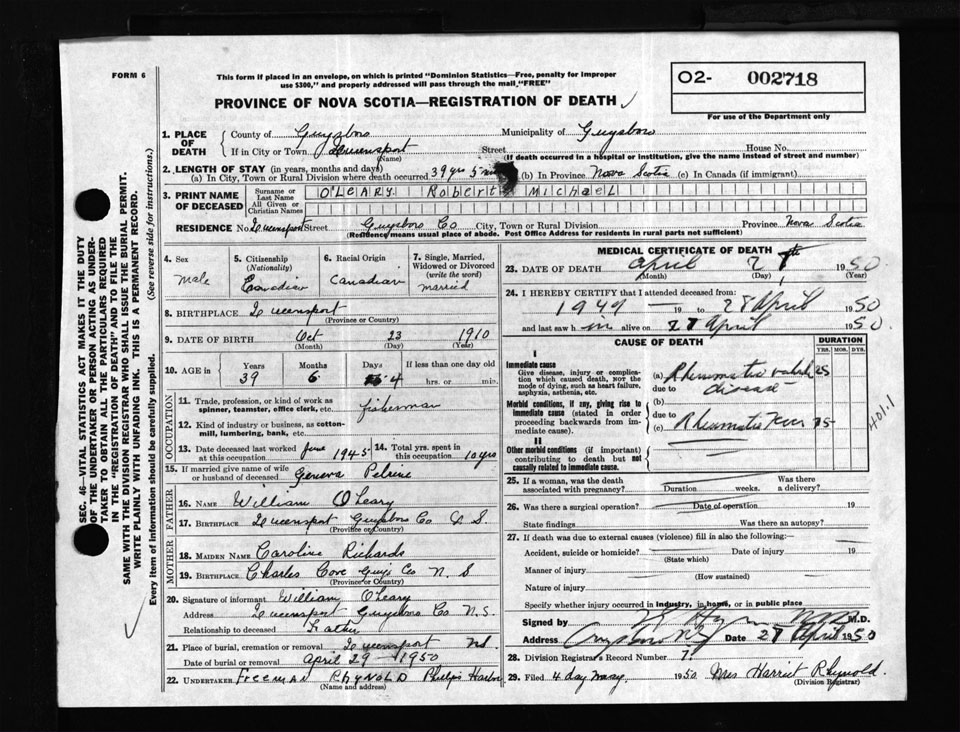 FORM 6
This form if placed in an envelope, on which is printed "Dominion Statistics—Free, penalty for improper
use $300," and properly addressed will pass through the mail "FREE"
O2- 002718
For use of the Department only
PROVINCE OF NOVA SCOTIA—REGISTRATION OF DEATH
1. PLACE OF DEATH
County of Guysboro Municipality of Guysboro
If in City or Town Queensport Street House No.
(Name) (If death occurred in a hospital or institution, give the name instead of street and number)
2. LENGTH OF STAY (in years, months and days)
(a) In City, Town or Rural Division where death occurred 39 yrs 5 (b) In Province Nova Scotia (c) In Canada (if immigrant)
3. PRINT NAME OF DECEASED
Surname or Last Name O'LEARY Robert MICHAEL
All Given or Christian Names
RESIDENCE No. Queensport Street Guysboro Co City, Town or Rural Division Province Nova Scotia
(Residence means usual place of abode. Post Office Address for residents in rural parts not sufficient)
4. Sex Male
5. Citizenship (Nationality) Canadian
6. Racial Origin Canadian
7. Single, Married, Widowed or Divorced (write the word) married
8. BIRTHPLACE Queensport
(Province or Country)
9. DATE OF BIRTH Oct 23 1910
(Month) (Day) (Year)
10. AGE in Years Months Days If less than one day old
39 6 4 hrs. or min.
OCCUPATION
11. Trade, profession, or kind of work as
spinner, teamster, office clerk, etc. fisherman
12. Kind of industry or business, as cotton-
mill, lumbering, bank, etc.
13. Date deceased last worked at this occupation June 1945
14. Total yrs. spent in this occupation 10 yrs
15. If married give name of wife
or husband of deceased Geneva Pelrine
FATHER
16. NAME William O'Leary
17. BIRTHPLACE Queensport Guysboro Co N S
(Province or Country)
MOTHER
18. MAIDEN NAME Caroline Richards
19. BIRTHPLACE Charles Cove Guys Co N. S
(Province or Country)
20. Signature of informant William O'Leary
Address Queensport Guysboro Co N.S.
Relationship to deceased Father
21. Place of burial, cremation or removal Queensport
Date of burial or removal April 29 - 1950
22. UNDERTAKER Freeman RHYNOLD Philips Harbor
(Name and address)
MEDICAL CERTIFICATE OF DEATH
23. DATE OF DEATH April 1950
(Month) (Day) (Year)
24. I HEREBY CERTIFY that I attended deceased from:
1949 19 to 28 April 1950
and last saw him alive on 27 April 1950.
CAUSE OF DEATH DURATION
YRS. MOS. DYS.
I
Immediate cause
Give disease, injury or complica-
tion which caused death, not the
mode of dying, such as heart failure,
asphyxia, asthenia, etc.
(a) Rheumatic valve 25
due to disease
Morbid conditions, if any, giving rise to
immediate cause (stated in order
proceeding backwards from im-
mediate cause).
(b)
due to
(c) Rheumatic Fever 25
401.1
II
Other morbid conditions (if important)
contributing to death but not
causally related to immediate cause.
25. If a woman, was the death
associated with pregnancy? Duration weeks. Was there a delivery?
26. Was there a surgical operation? Date of operation 19
State findings Was there an autopsy?
27. If death was due to external causes (violence) fill in also the following:—
Accident, suicide or homicide? Date of injury 19
(State which)
Manner of injury
(How sustained)
Nature of injury
Specify whether injury occurred in industry, in home, or in public place
Signed by M.D.
Address Guysboro NS Date 28 April 1950
28. Division Registrar's Record Number 7.
29. Filed 4 day May 1950 Mrs Harriet Rhynold.
(Division Registrar)
SEC. 46—VITAL STATISTICS ACT MAKES IT THE DUTY
OF THE UNDERTAKER OR PERSON ACTING AS UNDER-
TAKER TO OBTAIN ALL THE PARTICULARS REQUIRED
IN THE "REGISTRATION OF DEATH" AND TO FILE THE
SAME WITH THE DIVISION REGISTRAR WHO SHALL ISSUE THE BURIAL PERMIT.
WRITE PLAINLY WITH UNFADING INK. THIS IS A PERMANENT RECORD.
Every item of Information should be carefully supplied. (See reverse side for instructions.)